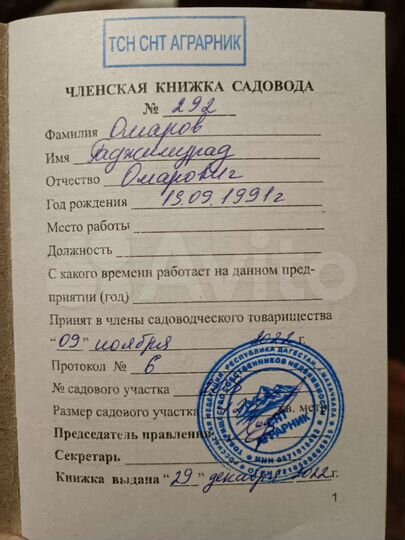 ТСН СНТ АГРАРНИК
ЧЛЕНСКАЯ КНИЖКА САДОВОДА
№ 292
Фамилия Омаров
Имя Гаджимурад
Отчество Омарович
Год рождения 19.09.1991г
Место работы
Должность
С какого времени работает на данном пред-
приятии (год)
Принят в члены садоводческого товарищества
"09" ноября 2022 г.
Протокол № 6
№ садового участка
Размер садового участка кв. метр.
Председатель правления
СНТ
АГРАРНИК
Секретарь
Книжка выдана "29" декабря 2022г.
1
Avito